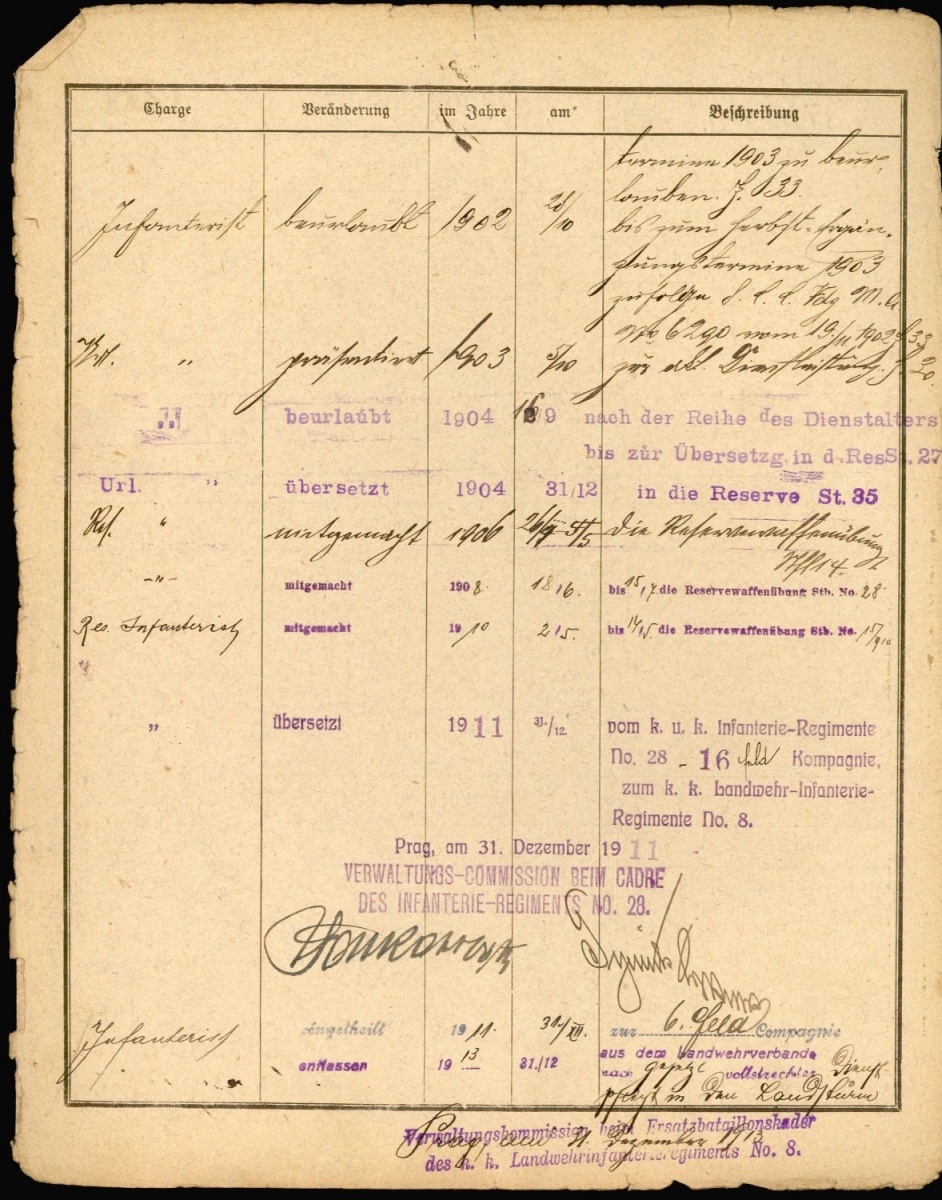 Charge Veränderung im Jahre am Beschreibung
termine 1903 zu beur-
lauben. Z. 33.
Infanterist beurlaubt 1902 28/10 bis zum Herbst-Ergän-
zungstermine 1903
zufolge
No 6290 vom 19./11 1902 33
" präsentiert 1903 5/10 zur akt. Dienstleistung. 20.
" beurlaubt 1904 9 nach der Reihe des Dienstalters
bis zur Übersetzg. in d. Res St. 27
Url. " übersetzt 1904 31/12 in die Reserve St. 35
Res. " mitgemacht 1906 die Reservewaffenübung
14.
-"- mitgemacht 1908. 18/6. bis 15/7. die Reservewaffenübung Stb. No. 28.
Res. Infanterist mitgemacht 1910 2/5. bis 14/5. die Reservewaffenübung Stb. No.
"
" übersetzt 1911 31./12. vom k. u. k. Infanterie-Regimente
No. 28 - 16 feld Kompagnie,
zum k. k. Landwehr-Infanterie-
Regimente No. 8.
Prag, am 31. Dezember 1911.
VERWALTUNGS-COMMISSION BEIM CADRE
DES INFANTERIE-REGIMENTS NO. 28.
Infanterist eingetheilt 1911. 31./XII. zur 6. Feld Compagnie
entlassen 1913 31./12 aus dem Landwehrverbande
nach gesetzl vollstreckter Dienst-
pflicht in den Landsturm
Verwaltungskommission beim Ersatzbataillonskader
Prag, am 31. Dezember 1913
des k. k. Landwehrinfanterieregiments No. 8.